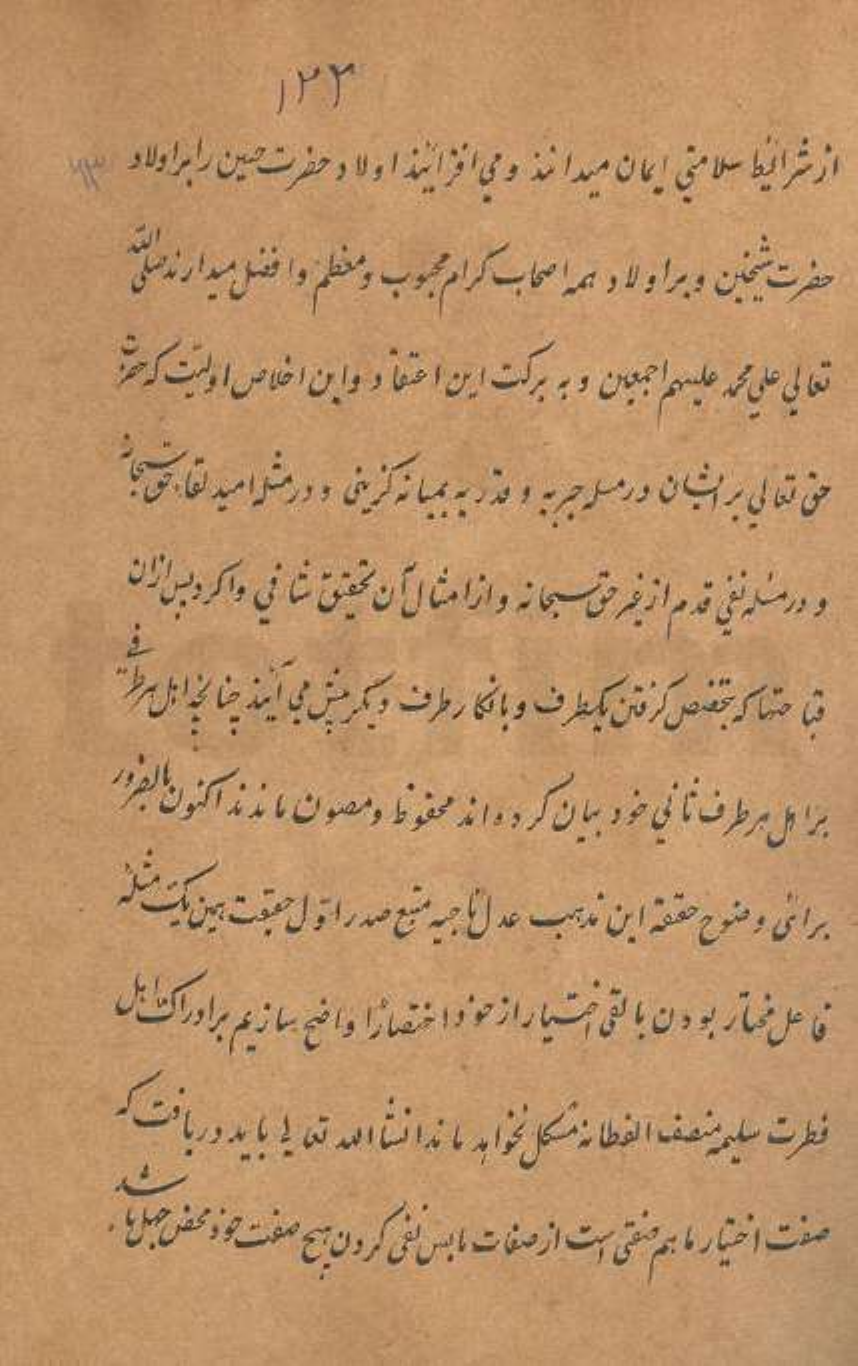 ۱۲۳
از شرائیط سلامتی ایمان میدانند و می افزائیند اولاد حضرت حسین را بر اولاد
۶۳
حضرت شیخین و بر اولاد همه اصحاب کرام محبوب و معظم و افضل میدارند صلی الله
تعالی علی محمد علیهم اجمعین و به برکت این اعتقاد و این اخلاص اولیّت که حضرت
حق تعالی بر ایشان در مسله جبریه و قدریه بمیانه گزینی و در مثله امید لقاء حق سبحانه
و در مسئله نفی قدم از غیر حق سبحانه و از امثال آن تحقیق شافی واکرد پس ازان
قباحتها که بتخصیص کرفتن یکطرف و بانکار طرف دیکر پیش می آیند چنانچه اهل هر طرفی
بر اهل هر طرف ثانی خود بیان کرده اند محفوظ و مصون ماندند اکنون بالضرور
برائی وضوح حققة این مذهب عدل ناجیه متبع صدر اوّل حقیقت همین یک مثله
فاعل مختار بودن با لقی اختیار از خود اختصارًا واضح سازیم بر ادراک اهل
فطرت سلیمه منصف الفطانه مشکل نخواهد ماند انشا الله تعالی باید دریافت که
صفت اختیار ما هم صفتی است از صفات ما بس نفی کردن هیچ صفت خود محض جهل باشد